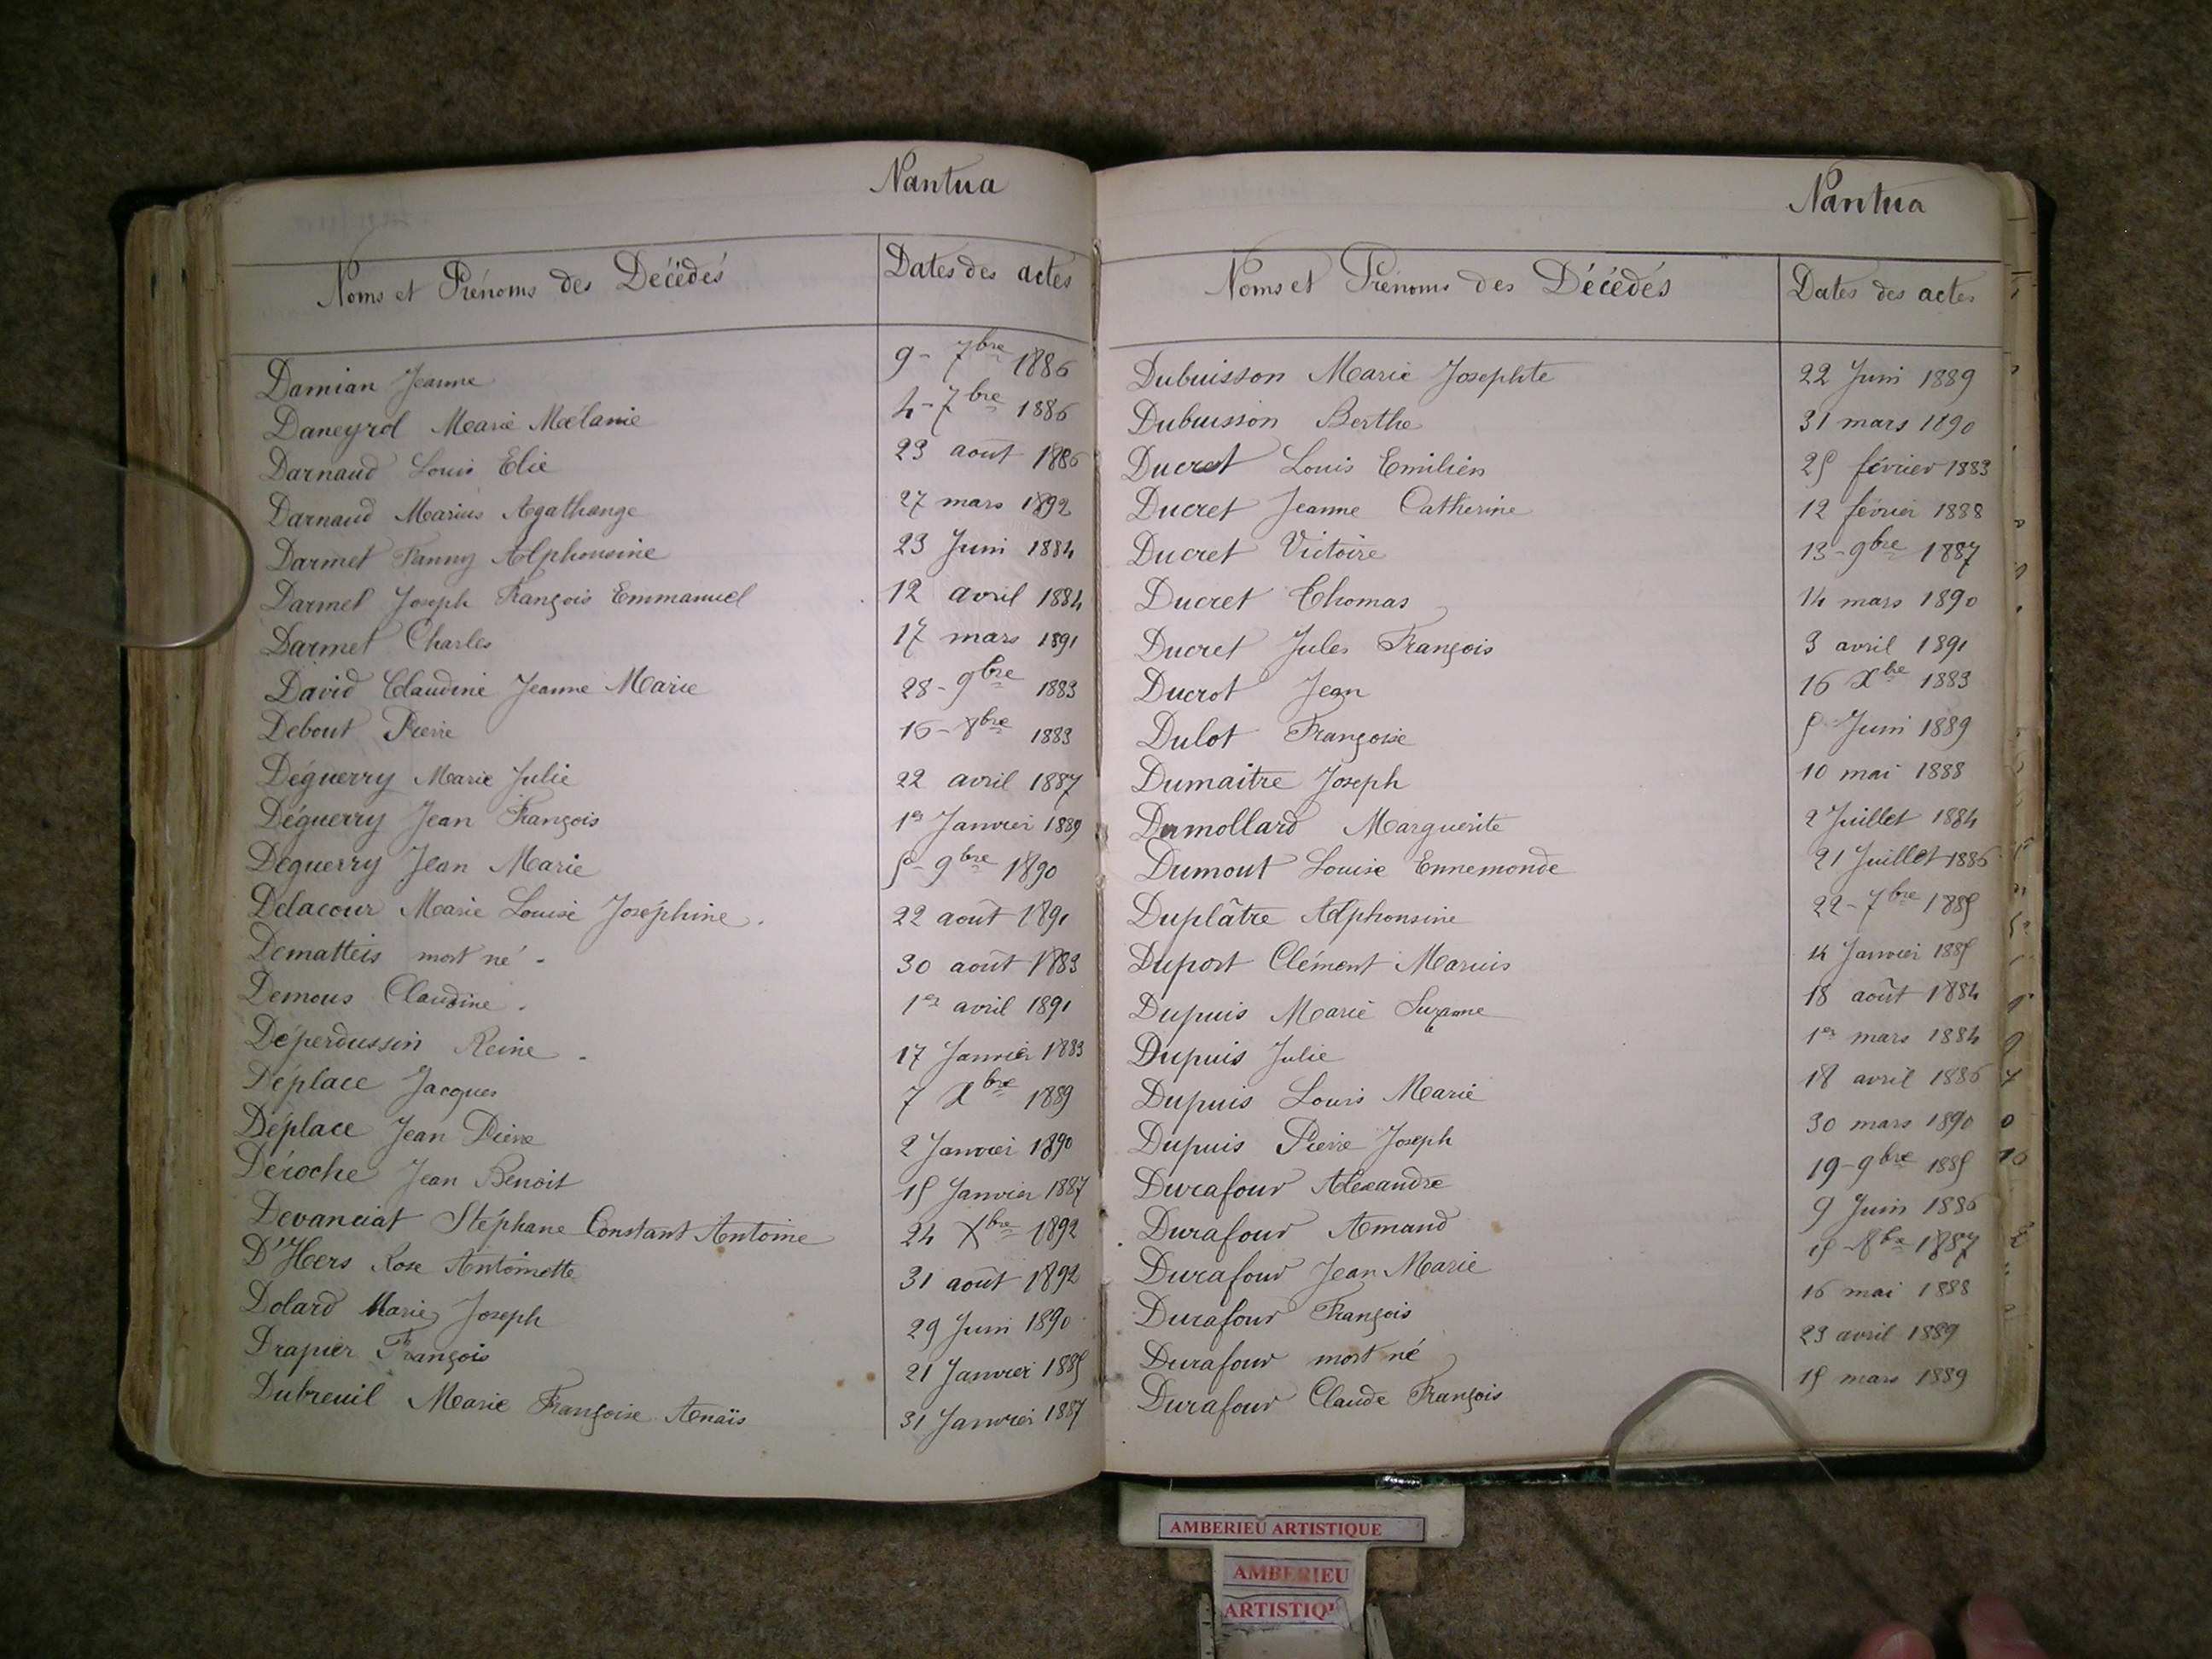 Nantua
Noms et Prénoms des Décédés Dates des actes
Damian Jeanne 9 - 7bre 1886
Daneyrol Marie Mélanie 4 - 7bre 1886
Darnaud Louis Elie 23 août 1886
Darnaud Marius Agathange 27 mars 1892
Darmet Fanny Alphonsine 23 Juin 1884
Darmet Joseph François Emmanuel 12 avril 1884
Darmet Charles 17 mars 1891
David Claudine Jeanne Marie 28 - 9bre 1883
Debout Pierre 16 - 8bre 1883
Déguerry Marie Julie 22 avril 1887
Déguerry Jean François 1er Janvier 1889
Déguerry Jean Marie 5 - 9bre 1890
Delacour Marie Louise Joséphine. 22 août 1891
Dematteis mort né - 30 août 1883
Demous Claudine. 1er avril 1891
Déperdussin Reine - 17 Janvier 1883
Déplace Jacques 7 Xbre 1889
Déplace Jean Pierre 2 Janvier 1890
Déroche Jean Benoit 15 Janvier 1887
Devanciat Stéphane Constant Antoine 24 Xbre 1892
D'Hers Rose Antoinette 31 août 1892
Dolard Marie Joseph 29 Juin 1890
Drapier François 21 Janvier 1885
Dubreuil Marie Françoise Anaïs 31 Janvier 1887
Nantua
Noms et Prénoms des Décédés Dates des actes
Dubuisson Marie Josephte 22 Juin 1889
Dubuisson Berthe 31 mars 1890
Ducret Louis Emilien 25 février 1883
Ducret Jeanne Catherine 12 février 1888
Ducret Victoire 13 - 9bre 1887
Ducret Thomas 14 mars 1890
Ducret Jules François 3 avril 1891
Ducrot Jean 16 Xbre 1883
Dulot Françoise 5 Juin 1889
Dumaitre Joseph 10 mai 1888
Dumollard Marguerite 2 Juillet 1884
Dumont Louise Ennemonde 21 Juillet 1886
Duplâtre Alphonsine 22 - 7bre 1885
Duport Clément Marius 14 Janvier 1885
Dupuis Marie Suzanne 18 août 1884
Dupuis Julie 1er mars 1884
Dupuis Louis Marie 18 avril 1886
Dupuis Pierre Joseph 30 mars 1890
Durafour Alexandre 19 - 9bre 1885
Durafour Amand 9 Juin 1886
Durafour Jean Marie 15 - 8bre 1887
Durafour François 16 mai 1888
Durafour mort né 23 avril 1889
Durafour Claude François 15 mars 1889
AMBERIEU ARTISTIQUE
AMBERIEU